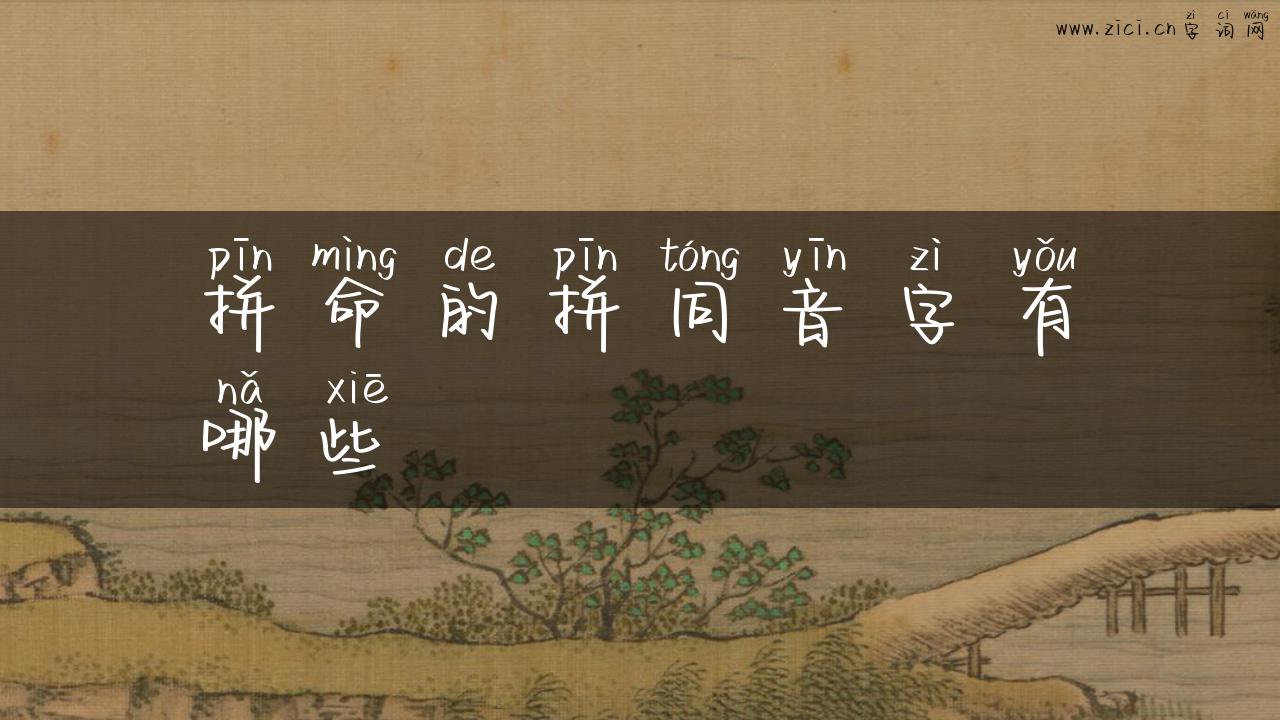 www.zici.cn zì cí wǎng
字词网
pīn mìng de pīn tóng yīn zì yǒu
拼命的拼同音字有
nǎ xiē
哪些